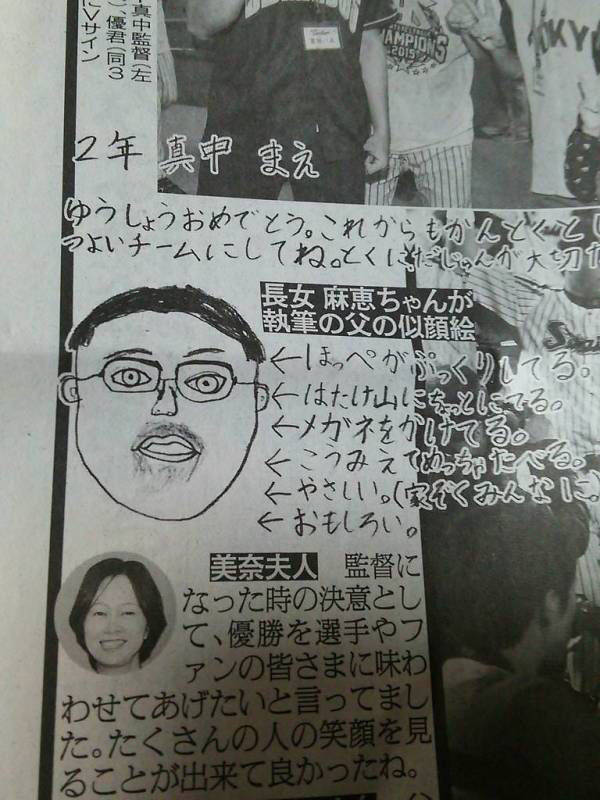 真中監督(左
)、優君(同3
にVサイン
CHAMPIONS
2015
TOKYO
2年 真中 まえ
ゆうしょうおめでとう。これからもかんとくとし
つよいチームにしてね。とくに、だじゅんが大切だ
長女 麻恵ちゃんが
執筆の父の似顔絵
←ほっぺがぷっくりしてる。
←はたけ山にちょっとにてる。
←メガネをかけてる。
←こうみえてめっちゃたべる。
←やさしい。(家ぞくみんなに。
←おもしろい。
美奈夫人 監督に
なった時の決意とし
て、優勝を選手やフ
ァンの皆さまに味わ
わせてあげたいと言ってまし
た。たくさんの人の笑顔を見
ることが出来て良かったね。